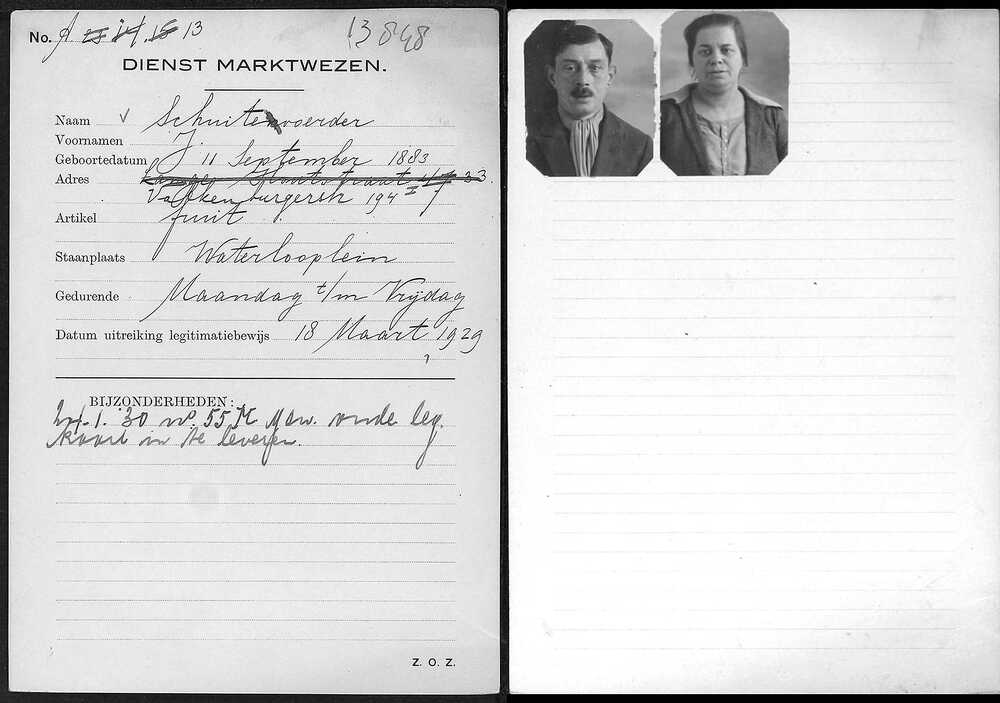 No. 13 13848
DIENST MARKTWEZEN.
Naam Schuitenvoerder
Voornamen J.
Geboortedatum 11 September 1883
Adres
Valkenburgerstr 194 I
Artikel fruit
Staanplaats Waterlooplein
Gedurende Maandag t/m Vrijdag
Datum uitreiking legitimatiebewijs 18 Maart 1929
BIJZONDERHEDEN:
24.1.'30 no. 55 M oude leg.
kaart in te leveren.
Z. O. Z.